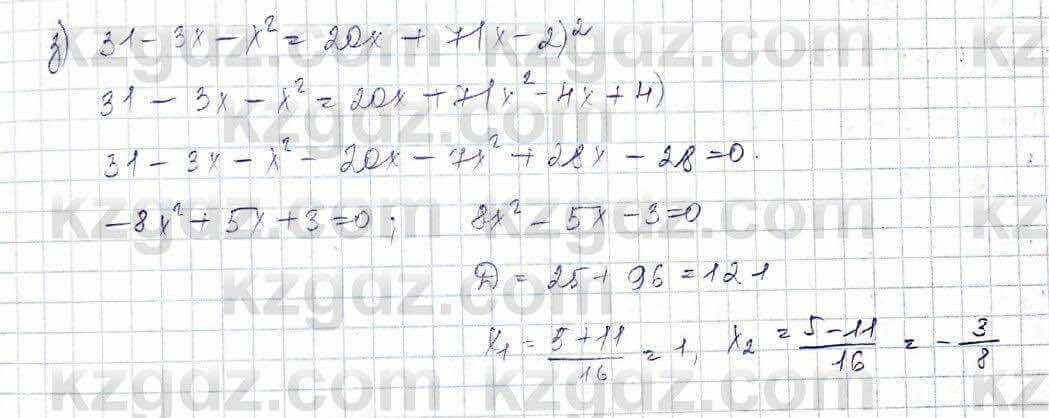 з) 31 - 3x - x² = 20x + 7(x - 2)²
31 - 3x - x² = 20x + 7(x² - 4x + 4)
31 - 3x - x² - 20x - 7x² + 28x - 28 = 0.
-8x² + 5x + 3 = 0; 8x² - 5x - 3 = 0
D = 25 + 96 = 121
x₁ = (5 + 11)/16 = 1, x₂ = (5 - 11)/16 = -3/8
kzgdz.com